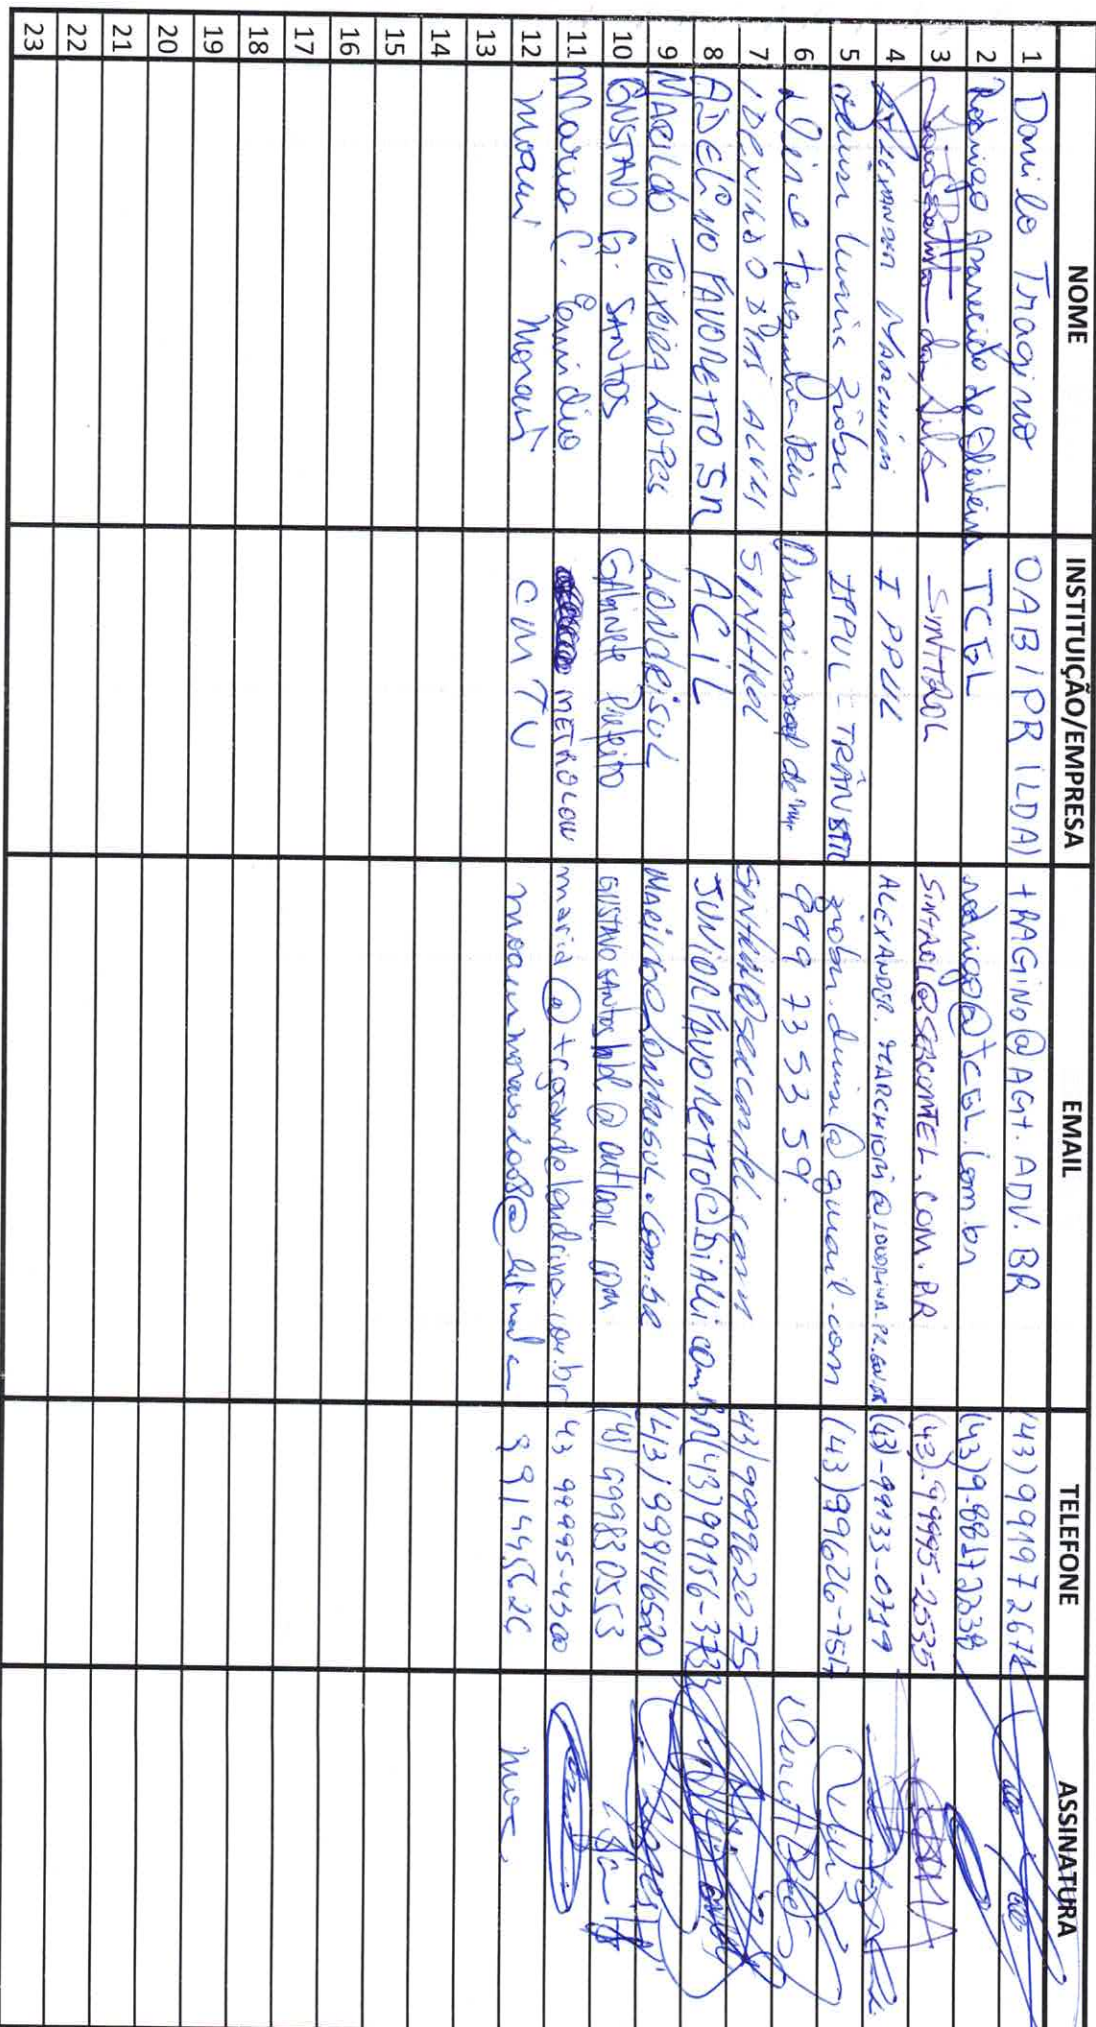 NOME INSTITUIÇÃO/EMPRESA EMAIL TELEFONE ASSINATURA
1 Danilo Tragino OAB/PR (LDA) TRAGINO@AGT.ADV.BR (43) 991972671
2 Rodrigo Aparecido de Oliveira TCGL rodrigo@tcgl.com.br (43) 9.88172238
3 da Silva SINTTROL SINTROL@SERCOMTEL.COM.BR (43)-99995-2535
4 ALEXANDRE MARCHIORI IPPUL ALEXANDRE.MARCHIORI@LONDRINA.PR.GOV.BR (43)-99133-0719
5 Denise Maria Ziober IPPUL - TRÂNSITO ziober.denise@gmail.com (43) 99626-7517
6 Dirce Reis 999 73 53 59.
7 IDENILDO DIAS ALVES SINTTROL (43) 999962075
8 ADELINO FAVORETTO JR ACIL JUNIORFAVORETTO@DIALLI.COM.BR (43) 99156-3783
9 MARILDO TEIXEIRA LOPES LONDRISUL MARILDO@LONDRISUL.COM.BR (43) 999146520
10 GUSTAVO G. SANTOS GABINETE PREFEITO @outlook.com (43) 999830553
11 Maria C. METROLON maria@tcgrandelondrina.com.br 43 99995-4300
12 Moacir CMTU 991445626
13
14
15
16
17
18
19
20
21
22
23